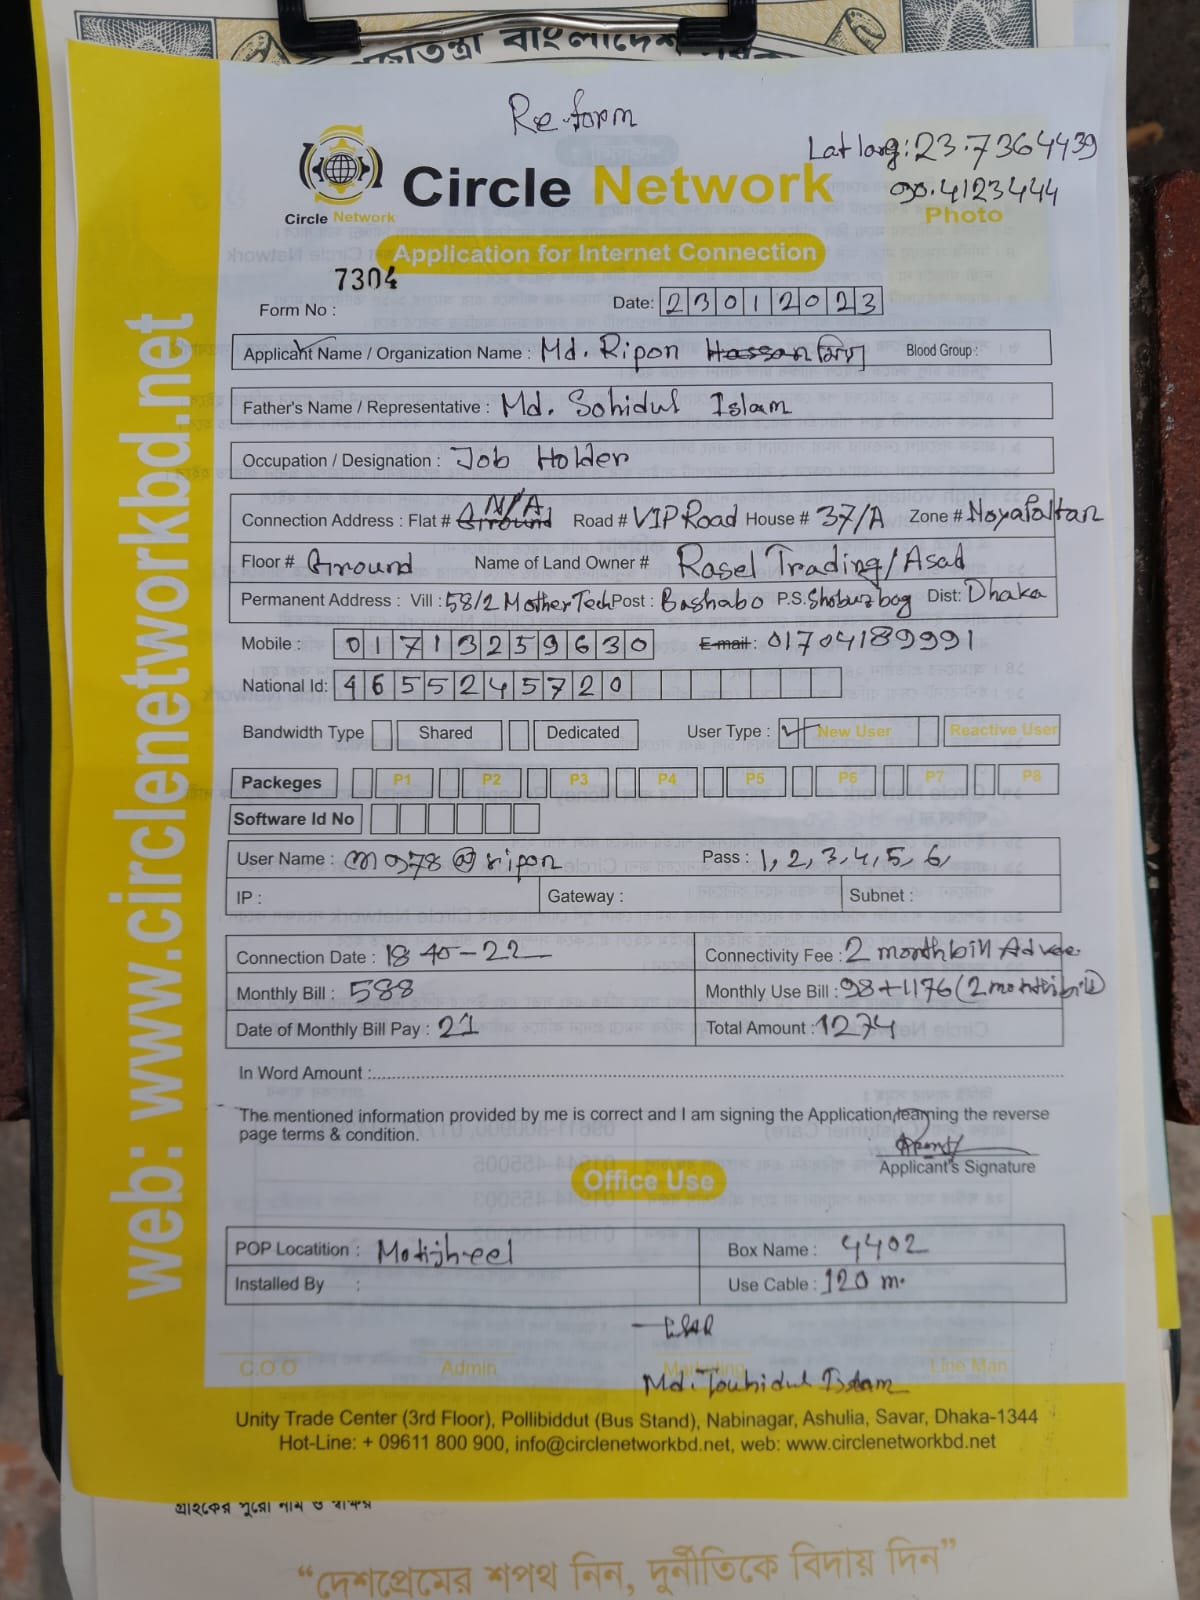 প্রজাতন্ত্রী বাংলাদেশ
Re-form
Lat long: 23.7364439
90.4123444
Circle Network
Circle Network
Photo
Application for Internet Connection
7304
Form No :
Date: 23012023
Applicant Name / Organization Name : Md. Ripon Hassan মিয়া Blood Group :
Father's Name / Representative : Md. Sohidul Islam
Occupation / Designation : Job Holder
N/A
Connection Address : Flat # Ground Road # VIP Road House # 37/A Zone # Noyapaltan
Floor # Ground Name of Land Owner # Rasel Trading/Asad
Permanent Address : Vill : 58/2 Mother Tech Post : Bashabo P.S. Shobuzbog Dist: Dhaka
Mobile : 01713259630 E-mail : 01704189991
National Id: 4655245720
Bandwidth Type Shared Dedicated User Type : ✓ New User Reactive User
Packeges P1 P2 P3 P4 P5 P6 P7 P8
Software Id No
User Name : m978@ripon Pass : 1,2,3,4,5,6
IP : Gateway : Subnet :
Connection Date : 18-10-22 Connectivity Fee : 2 month bill
Monthly Bill : 588 Monthly Use Bill : 98+1176 (2 month bill)
Date of Monthly Bill Pay : 21 Total Amount : 1274
In Word Amount :
The mentioned information provided by me is correct and I am signing the Application, learning the reverse
page terms & condition.
Applicant's Signature
Office Use
POP Locatition : Motijheel Box Name : 4402
Installed By : Use Cable : 120 m.
C.O.O Admin Marketing Line Man
Md. Touhidul Islam
Unity Trade Center (3rd Floor), Pollibiddut (Bus Stand), Nabinagar, Ashulia, Savar, Dhaka-1344
Hot-Line: + 09611 800 900, info@circlenetworkbd.net, web: www.circlenetworkbd.net
web: www.circlenetworkbd.net
গ্রাহকের পুরো নাম ও স্বাক্ষর
“দেশপ্রেমের শপথ নিন, দুর্নীতিকে বিদায় দিন”